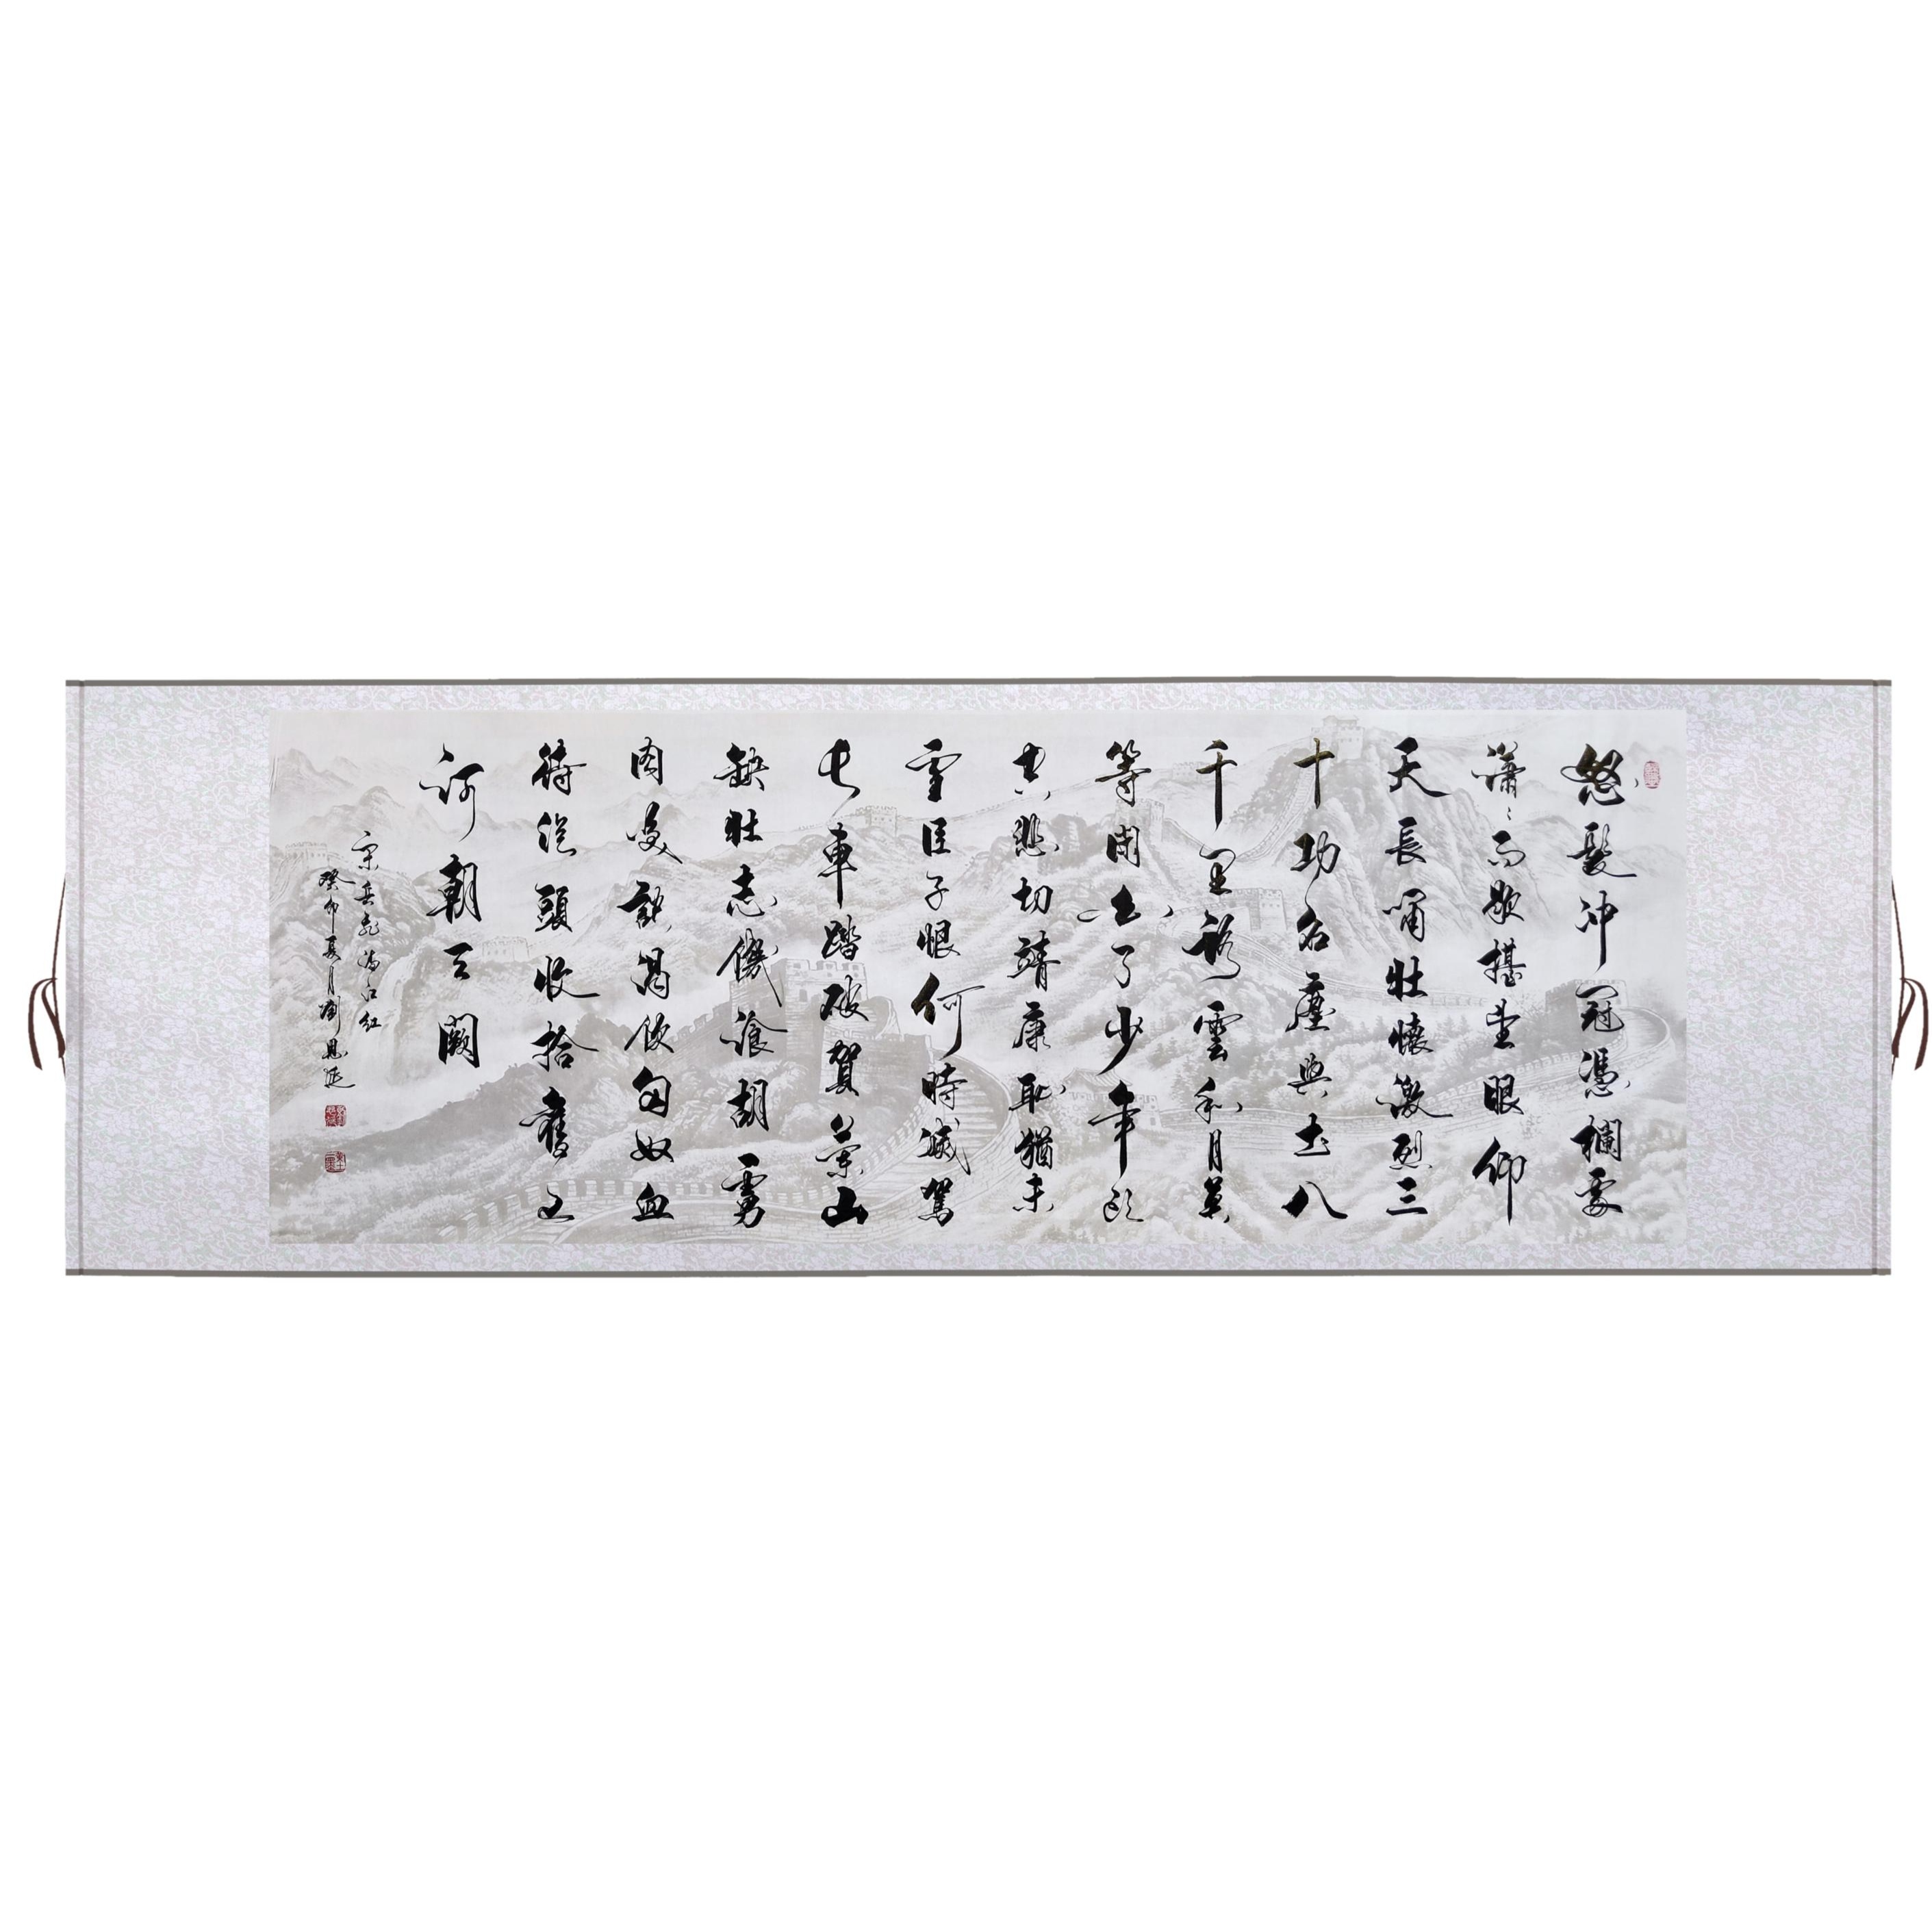 怒髮冲冠憑欄處
瀟瀟雨歇擡望眼仰
天長嘯壯懷激烈三
十功名塵與土八
千里路雲和月莫
等閑白了少年頭
空悲切靖康恥猶未
雪臣子恨何時滅駕
長車踏破賀蘭山
缺壯志饑飡胡虜
肉笑談渴飲匈奴血
待從頭收拾舊山
河朝天闕
宋岳飛滿江紅
癸卯夏月劉恩延